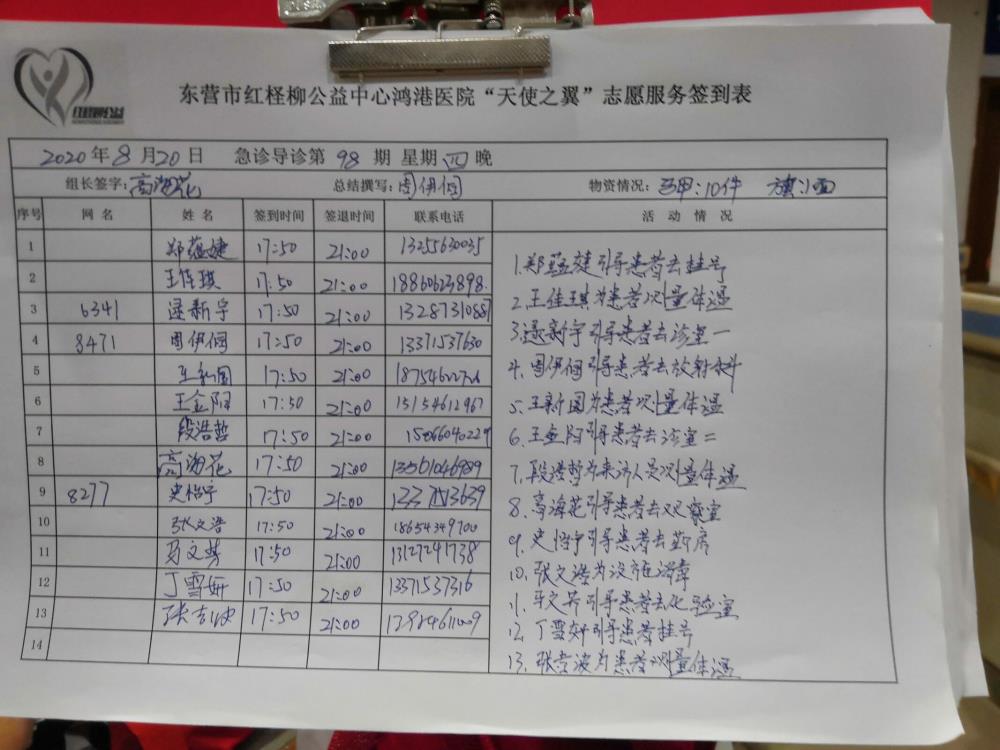 红柽柳公益
东营市红柽柳公益中心鸿港医院“天使之翼”志愿服务签到表
2020年8月20日 急诊导诊第 98 期 星期 四 晚
组长签字：高海花 总结撰写：周伊侗 物资情况：马甲：10件 旗：1面
序号 网名 姓名 签到时间 签退时间 联系电话 活动情况
1 郑蕴婕 17:50 21:00 13255630035
2 王佳琪 17:50 21:00 18860623898
3 6341 逯新宇 17:50 21:00 13287310881
4 8471 周伊侗 17:50 21:00 13371537630
5 17:50 21:00
6 王金阳 17:50 21:00 13154612967
7 段浩哲 17:50 21:00 15066040229
8 高海花 17:50 21:00 13561046989
9 8277 史怡宁 17:50 21:00
10 张文浩 17:50 21:00 18654349700
11 17:50 21:00 13127241738
12 丁雪妍 17:50 21:00 13371537316
13 17:50 21:00
14
1.郑蕴婕引导患者去挂号
2.王佳琪为患者测量体温
3.逯新宇引导患者去诊室一
4.周伊侗引导患者去放射科
5.为患者测量体温
6.王金阳引导患者去诊室二
7.段浩哲为来访人员测量体温
8.高海花引导患者去观察室
9.史怡宁引导患者去厕所
10.张文浩为
11.引导患者去化验室
12.丁雪妍引导患者挂号
13.为患者测量体温